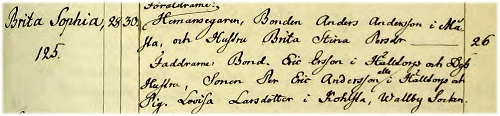 Föräldrarne:
Brita Sophia, 28 30. Hemansegaren, Bonden Anders Andersson i Mä-
125. sta, och Hustru Brita Stina Persdr 26
Faddrarne: Bond. Eric Ersson i Hälldorp och Dess
Hustru, Sonen Per Eric Andersson i Hälldorp och
Pig. Lovisa Larsdotter i Kohlsta, Wallby Socken.